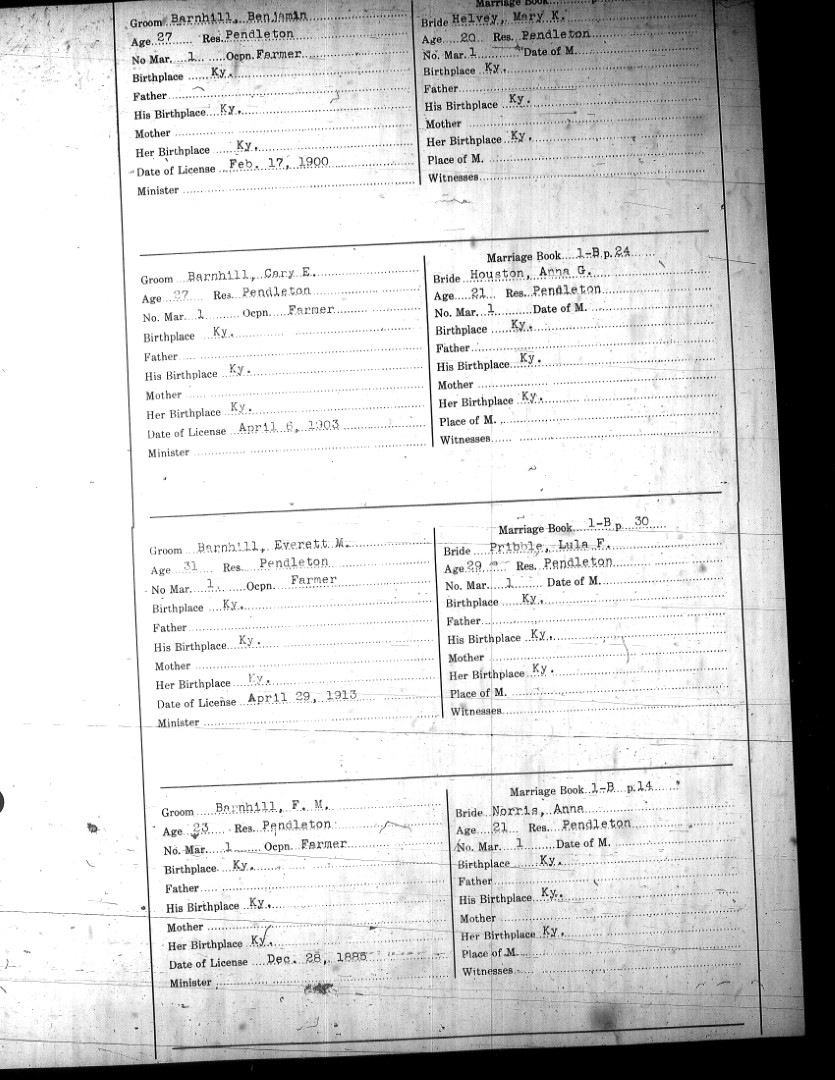 Groom Barnhill, Benjamin
Age 27 Res. Pendleton
No Mar. 1 Ocpn. Farmer
Birthplace Ky.
Father
His Birthplace Ky.
Mother
Her Birthplace Ky.
Date of License Feb. 17, 1900
Minister
Marriage Book
Bride Helvey, Mary K.
Age 20 Res. Pendleton
No. Mar. 1 Date of M.
Birthplace Ky.
Father
His Birthplace Ky.
Mother
Her Birthplace Ky.
Place of M.
Witnesses
Groom Barnhill, Cary E.
Age 27 Res. Pendleton
No. Mar. 1 Ocpn. Farmer
Birthplace Ky.
Father
His Birthplace Ky.
Mother
Her Birthplace Ky.
Date of License April 6, 1903
Minister
Marriage Book 1-B p. 24
Bride Houston, Anna G.
Age 21 Res. Pendleton
No. Mar. 1 Date of M.
Birthplace Ky.
Father
His Birthplace Ky.
Mother
Her Birthplace Ky.
Place of M.
Witnesses
Groom Barnhill, Everett M.
Age 31 Res. Pendleton
No Mar. 1 Ocpn. Farmer
Birthplace Ky.
Father
His Birthplace Ky.
Mother
Her Birthplace Ky.
Date of License April 29, 1913
Minister
Marriage Book 1-B p 30
Bride Pribble, Lula F.
Age 29 Res. Pendleton
No. Mar. 1 Date of M.
Birthplace Ky.
Father
His Birthplace Ky.
Mother
Her Birthplace Ky.
Place of M.
Witnesses
Groom Barnhill, F. M.
Age 23 Res. Pendleton
No. Mar. 1 Ocpn. Farmer
Birthplace Ky.
Father
His Birthplace Ky.
Mother
Her Birthplace Ky.
Date of License Dec. 28, 1885
Minister
Marriage Book 1-B p. 14
Bride Norris, Anna
Age 21 Res. Pendleton
No. Mar. 1 Date of M.
Birthplace Ky.
Father
His Birthplace Ky.
Mother
Her Birthplace Ky.
Place of M.
Witnesses